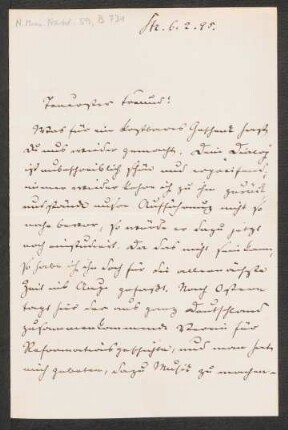 N. Mus. Nachl. 59, B 731
Str. 6. 2. 95.
Teuerster Freund!
Was für ein kostbares Geschenk hast
Du uns wieder gemacht. Dein Dialog
ist unbeschreiblich schön und ergreifend,
immer wieder kehre ich zu ihm zurück
und stünde unsere Aufführung nicht so
nahe bevor, so würde er dazu jetzt
noch einstudirt. Da das nicht sein kann,
so habe ich ihn doch für die allernächste
Zeit ins Auge gefaßt. Nach Ostern
tagt hier der aus ganz Deutschland
zusammenkommende Verein für
Reformationsgeschichte, und man hat
mich gebeten, dazu Musik zu machen –